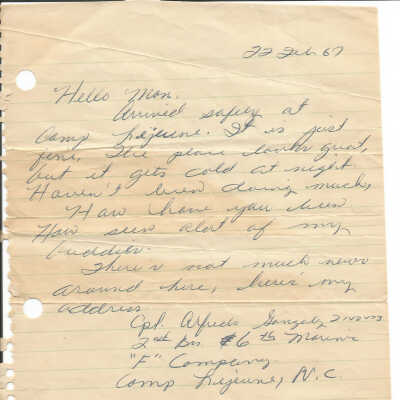 22 Feb. 67
Hello Mom.
Arrived safely at
Camp Lejeune. It is just
fine. The place looks great,
but it gets cold at night.
Haven't been doing much,
How have you been.
Have seen alot of my
buddies.
There's not much news
around here, here's my
address.
Cpl. Alfredo Gonzalez
2nd Bn 6th Marines
"F" Company
Camp Lejeune, N.C.